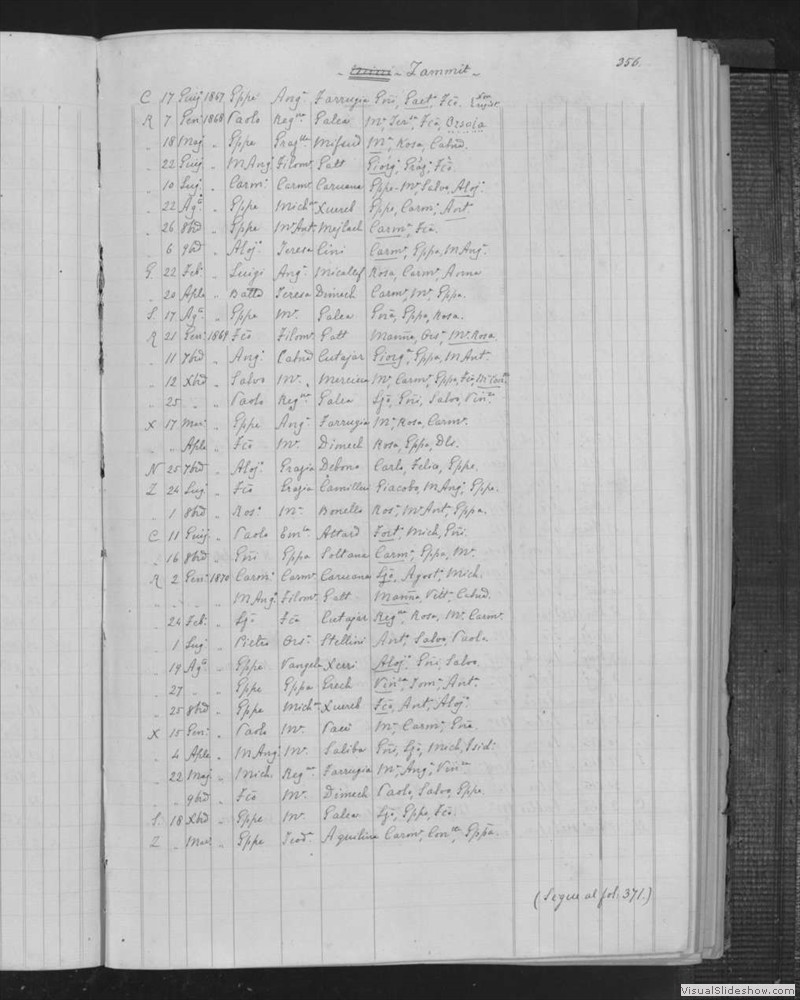 - Zammit -
356.
C 17 Giug 1867 Gppe Ang.ª Farrugia Gio, Gaet.º Fcõ.
R 7 Gen. 1868 Paolo Reg.na Galea M.ª Ter.ª Fcõ, Orsola
" 18 Mag " Gppe Graz.lla Mifsud M.ª Rosa, Catnd.
" 22 Giug " M Ang. Filom.ª Gatt Giorg.ª Graz.ª Fcõ.
" 10 Lug. " Carm. Carm.ª Caruana Gppe. M.ª Salvo, Aloj.
" 22 Ag.º " Gppe Mich.na Xuereb Gppe, Carm.ª Ant.
" 26 8bd " Gppe M. Ant. Mejlach Carm.ª Fcã.
" 6 9bd " Aloj. Teresa Cini Carm.ª Gppa, M Ang.
G. 22 Feb. " Luigi Ang. Micallef Rosa, Carm.ª Anna
" 20 Aple " Batta Teresa Dimech Carm.ª M.ª Gppa.
S. 17 Ag.º " Gppe M.ª Galea Gña, Gppa, Rosa.
R 21 Gen. 1869 Fcõ Filom.ª Gatt Mañña, Ors.ª M.ª Rosa
" 11 7bd " Ang. Catnd Cutajar Giorg.ª Gppa, M Ant.
" 12 Xbd " Salvo M.ª Mercieca M.ª Carm.ª Gppa, Fcõ,
" 25 " " Paolo Reg.na Galea Ljõ, Gñi, Salvo, Vin.za
X 17 Mar. " Gppe Ang. Farrugia M.ª Rosa, Carm.
" " Aple " Fcõ M.ª Dimech Rosa, Gppa, Dls.
N 25 7bd " Aloj. Grazia Debono Carlo, Felice, Gppe.
Z 24 Lug. " Fcõ Grazia Camilleri Giacobo, M Ang. Gppe.
" 1 8bd " Ros. M.ª Bonello Ros.ª M. Ant. Gppa.
C 11 Giug. " Paolo Em.la Attard Fort.ª Mich, Gñi.
" 16 8bd " Gñi Gppa Soltana Carm.ª Gppa, M.ª
R 2 Gen. 1870 Carm. Carm.ª Caruana Ljõ, Agost.ª Mich.
" " " " M Ang. Filom.ª Gatt Mañña Vitt. Catnd.
" 24 Feb. " Ljõ Fcã Cutajar Reg.na Rosa, M.ª Carm.
" 1 Lug " Pietro Ors. Stellini Ant.ª Salvo, Paola
" 19 Ag.º " Gppe Vangela Xerri Aloj.ª Gñi, Salvo,
" 27 " " Gppe Gppa Grech Vin.za Tom.ª Ant.
" 25 8bd " Gppe Mich.na Xuereb Fcõ, Ant.ª Aloj.
X 15 Gen. " Paolo M.ª Pace M.ª Carm.ª Gña.
" 4 Aple " M Ang. M.ª Saliba Gñi, Ljõ, Mich, Isid.
" 22 Mag " Mich. Reg.na Farrugia M.ª Ang.ª Vin.za
" " 9bd " Fcõ M.ª Dimech Paolo, Salvo, Gppe
S. 18 Xbd " Gppe M.ª Galea Ljõ, Gppe, Fcõ.
Z " Mar. " Gppe Teod. Aquilina Carm.ª Con.tta Gppa.
(Segue al fol. 371.)
VisualSlideshow.com